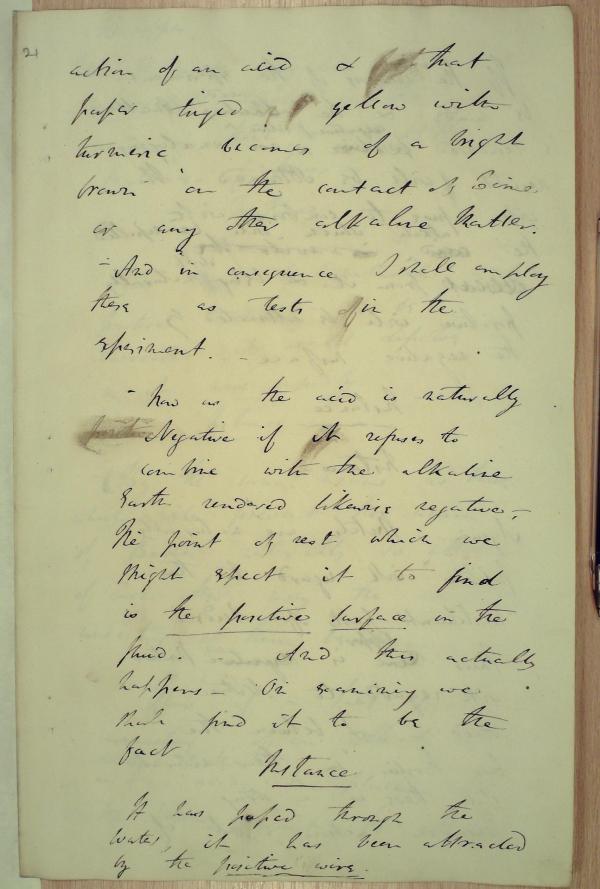 21
action of an acid & that
paper tinged yellow with
turmeric becomes of a bright
brown on the contact of Lime
or any other alkaline Matter.
- And in consequence I shall employ
these as tests in the
experiment. -
- Now as the acid is naturally
Negative if it refuses to
combine with the alkaline
Earth rendered likewise negative, -
The point of rest which we
might expect it to find
is the positive surface in the
fluid. And this actually
happens - On examining we
shall find it to be the
fact
Instance
It has passed through the
water, it has been attracted
by the positive wire.